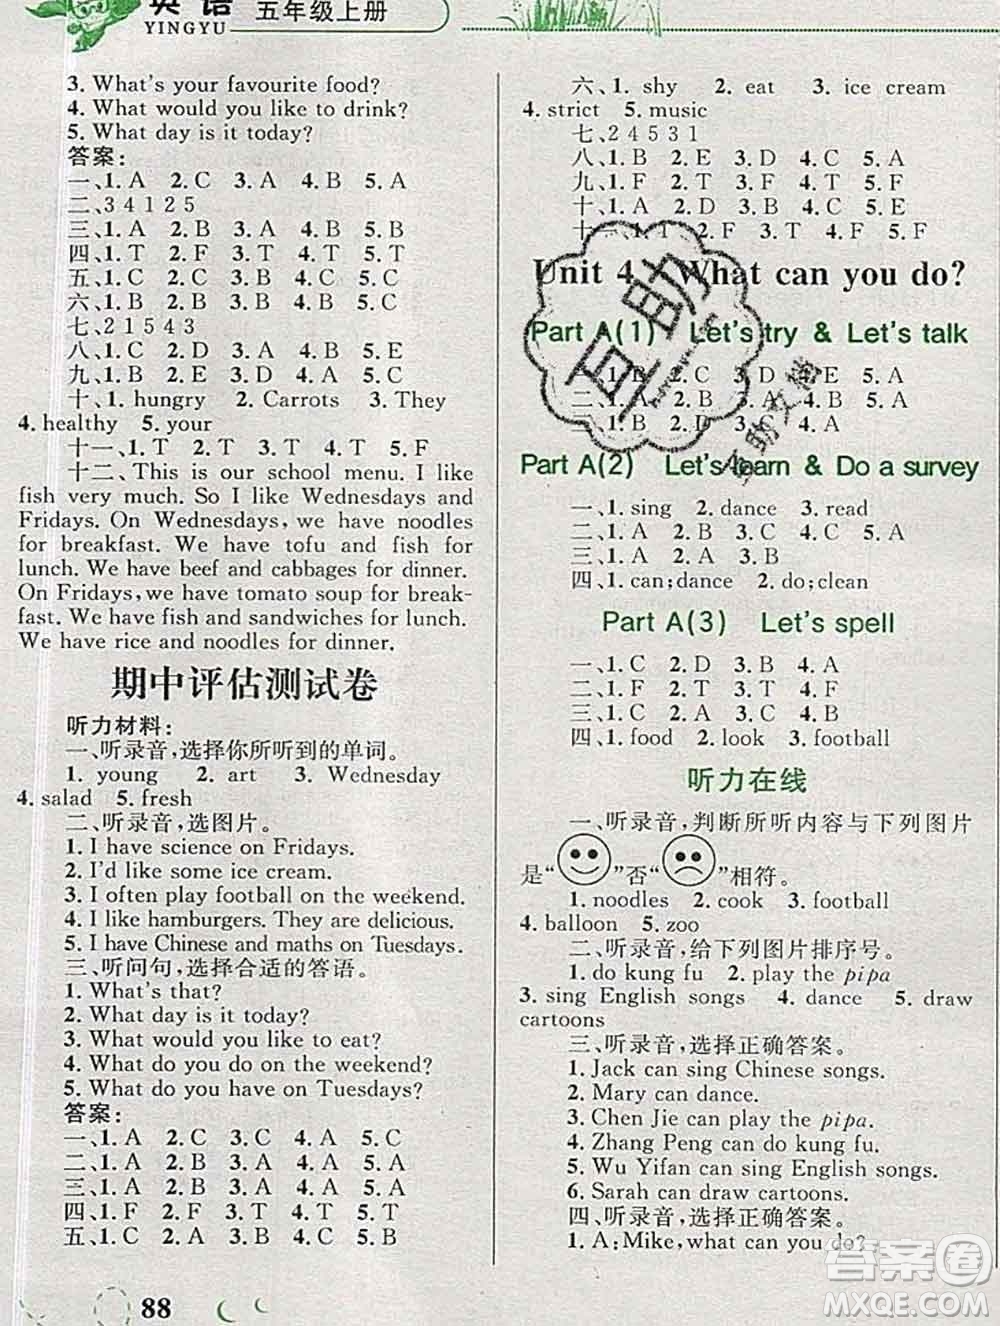 英语
YINGYU
五年级上册
3. What's your favourite food?
4. What would you like to drink?
5. What day is it today?
答案:
一、1. A 2. C 3. A 4. B 5. A
二、3 4 1 2 5
三、1. B 2. A 3. A 4. B 5. B
四、1. T 2. F 3. T 4. T 5. T
五、1. C 2. B 3. C 4. C 5. C
六、1. B 2. C 3. B 4. C 5. B
七、2 1 5 4 3
八、1. C 2. D 3. A 4. B 5. E
九、1. B 2. A 3. E 4. C 5. D
十、1. hungry 2. Carrots 3. They
4. healthy 5. your
十一、1. T 2. T 3. T 4. T 5. F
十二、This is our school menu. I like
fish very much. So I like Wednesdays and
Fridays. On Wednesdays, we have noodles
for breakfast. We have tofu and fish for
lunch. We have beef and cabbages for dinner.
On Fridays, we have tomato soup for break-
fast. We have fish and sandwiches for lunch.
We have rice and noodles for dinner.
期中评估测试卷
听力材料:
一、听录音,选择你所听到的单词。
1. young 2. art 3. Wednesday
4. salad 5. fresh
二、听录音,选图片。
1. I have science on Fridays.
2. I'd like some ice cream.
3. I often play football on the weekend.
4. I like hamburgers. They are delicious.
5. I have Chinese and maths on Tuesdays.
三、听问句,选择合适的答语。
1. What's that?
2. What day is it today?
3. What would you like to eat?
4. What do you do on the weekend?
5. What do you have on Tuesdays?
答案:
一、1. A 2. C 3. C 4. A 5. C
二、1. A 2. B 3. A 4. B 5. B
三、1. A 2. B 3. A 4. B 5. A
四、1. F 2. F 3. T 4. T 5. T
五、1. C 2. B 3. A 4. B 5. B
88
六、1. shy 2. eat 3. ice cream
4. strict 5. music
七、2 4 5 3 1
八、1. B 2. E 3. D 4. C 5. A
九、1. F 2. T 3. T 4. T 5. F
十、1. A 2. D 3. B 4. C 5. E
十一、1. T 2. F 3. T 4. F 5. F
Unit 4 What can you do?
Part A(1) Let's try & Let's talk
一、1. B 2. C 3. D 4. E 5. A
二、1. C 2. B 3. A 4. C 5. A
三、1. B 2. D 3. C 4. A
Part A(2) Let's learn & Do a survey
一、1. sing 2. dance 3. read
二、1. A 2. B 3. B 4. C 5. A
三、1. A 2. A 3. B
四、1. can; dance 2. do; clean
Part A(3) Let's spell
一、1. C 2. D 3. B 4. A
二、1. F 2. T 3. T 4. T
三、1. A 2. A 3. C 4. B
四、1. food 2. look 3. football
听力在线
一、听录音,判断所听内容与下列图片
是“ ”否“ ”相符。
1. noodles 2. cook 3. football
4. balloon 5. zoo
二、听录音,给下列图片排序号。
1. do kung fu 2. play the pipa
3. sing English songs 4. dance 5. draw
cartoons
三、听录音,选择正确答案。
1. Jack can sing Chinese songs.
2. Mary can dance.
3. Chen Jie can play the pipa.
4. Zhang Peng can do kung fu.
5. Wu Yifan can sing English songs.
6. Sarah can draw cartoons.
四、听录音,选择正确答案。
1. A: Mike, what can you do?
答案圈
MXQE.COM